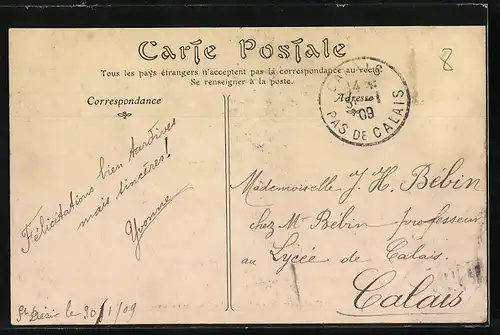 Carte Postale
Tous les pays étrangers n'acceptent pas la correspondance au recto.
Se renseigner à la poste.
8
Correspondance
Adresse
CALAIS
PAS DE CALAIS
09
Félicitations bien tardives
mais sincères!
Yvonne
Mademoiselle J. H. Bébin
chez Mr Bébin professeur
au Lycée de Calais.
Calais
le 30/1/09